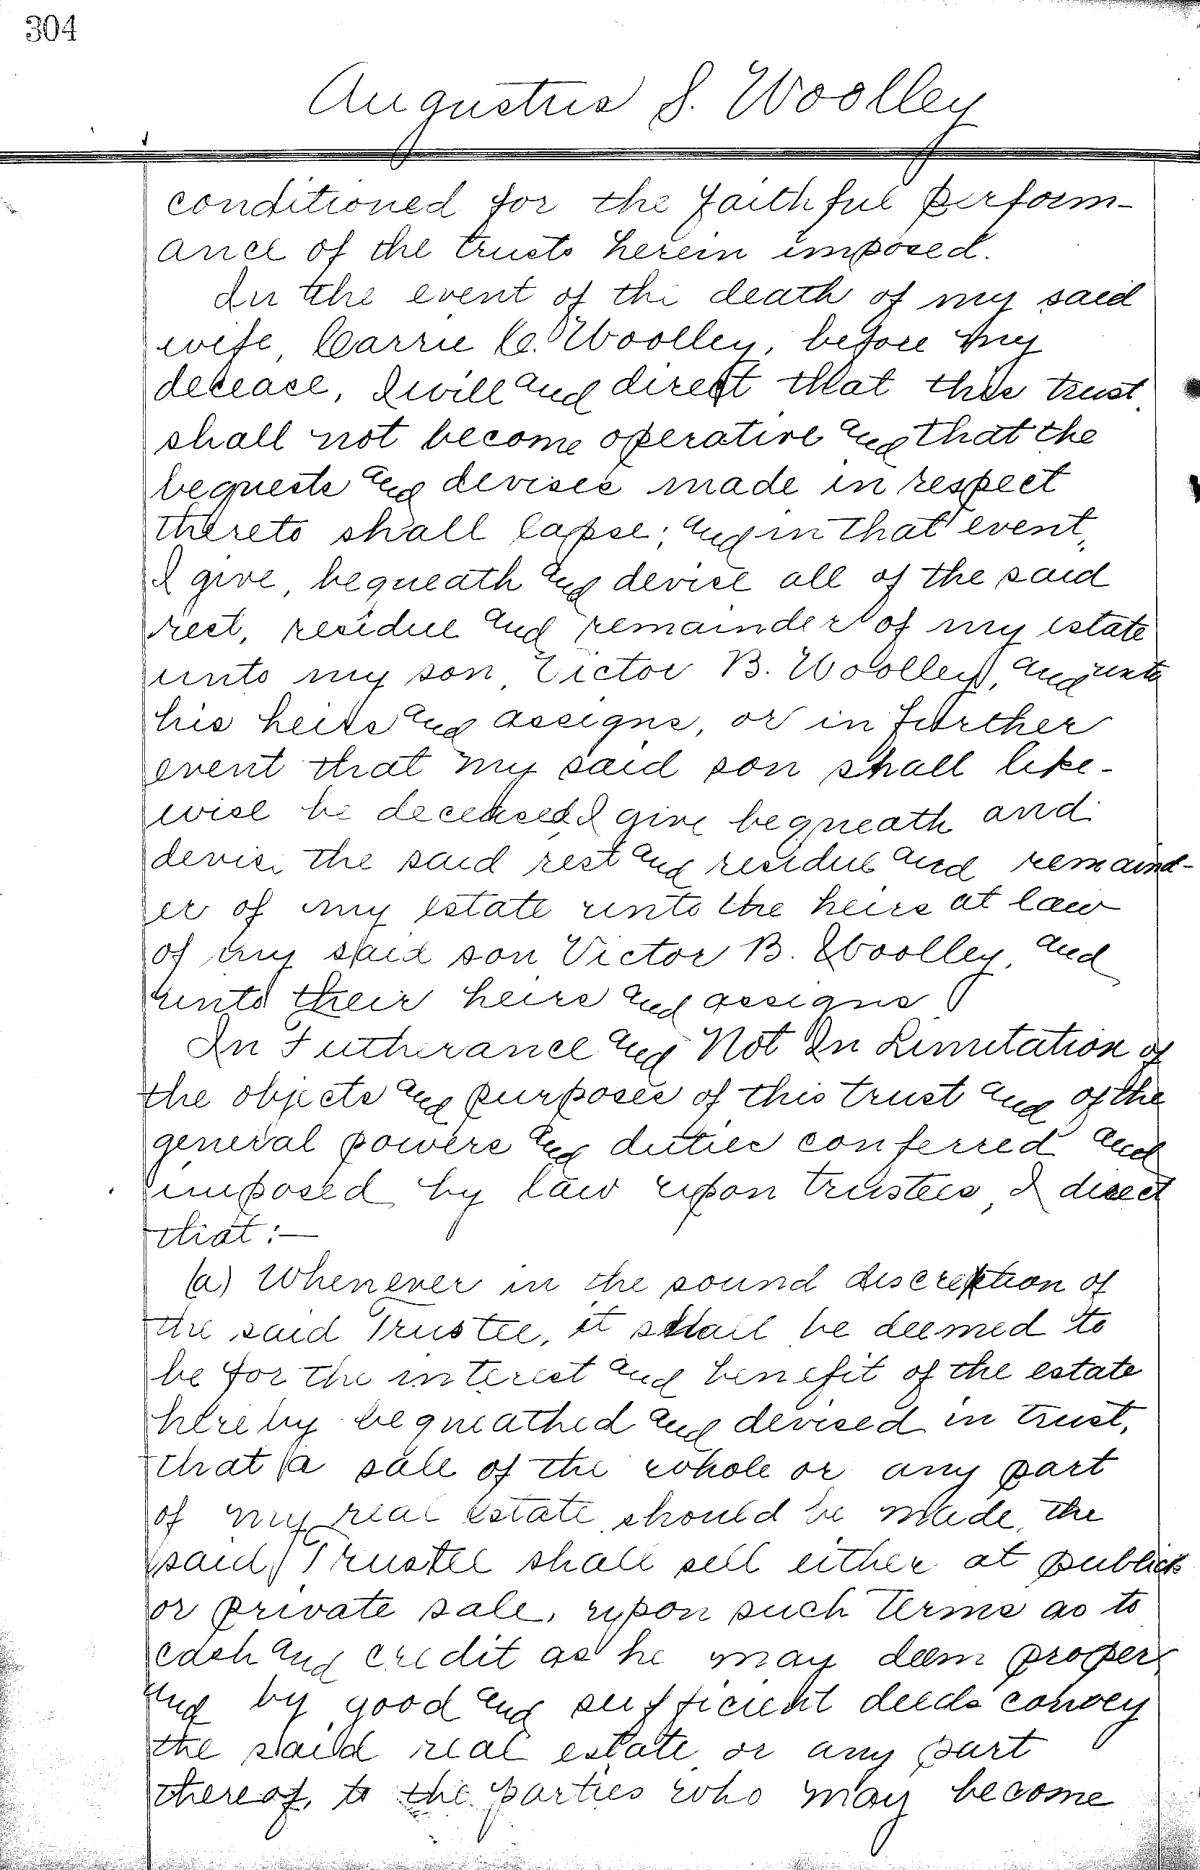 304
Augustus S. Woolley
conditioned for the faithful perform-
ance of the trusts herein imposed.
In the event of the death of my said
wife, Carrie C. Woolley, before my
decease, I will and direct that this trust
shall not become operative and that the
bequests and devises made in respect
thereto shall lapse; and in that event,
I give, bequeath and devise all of the said
rest, residue and remainder of my estate
unto my son, Victor B. Woolley, and unto
his heirs and assigns, or in further
event that my said son shall like-
wise be deceased, I give bequeath and
devise the said rest and residue and remaind-
er of my estate unto the heirs at law
of my said son Victor B. Woolley, and
unto their heirs and assigns.
In Futherance and Not In Limitation of
the objects and purposes of this trust and of the
general powers and duties conferred and
imposed by law upon trustees, I direct
that:—
(a) Whenever in the sound discretion of
the said Trustee, it shall be deemed to
be for the interest and benefit of the estate
hereby bequeathed and devised in trust,
that a sale of the whole or any part
of my real estate should be made, the
said Trustee shall sell either at public
or private sale, upon such terms as to
cash and credit as he may deem proper
and by good and sufficient deeds convey
the said real estate or any part
thereof, to the parties who may become